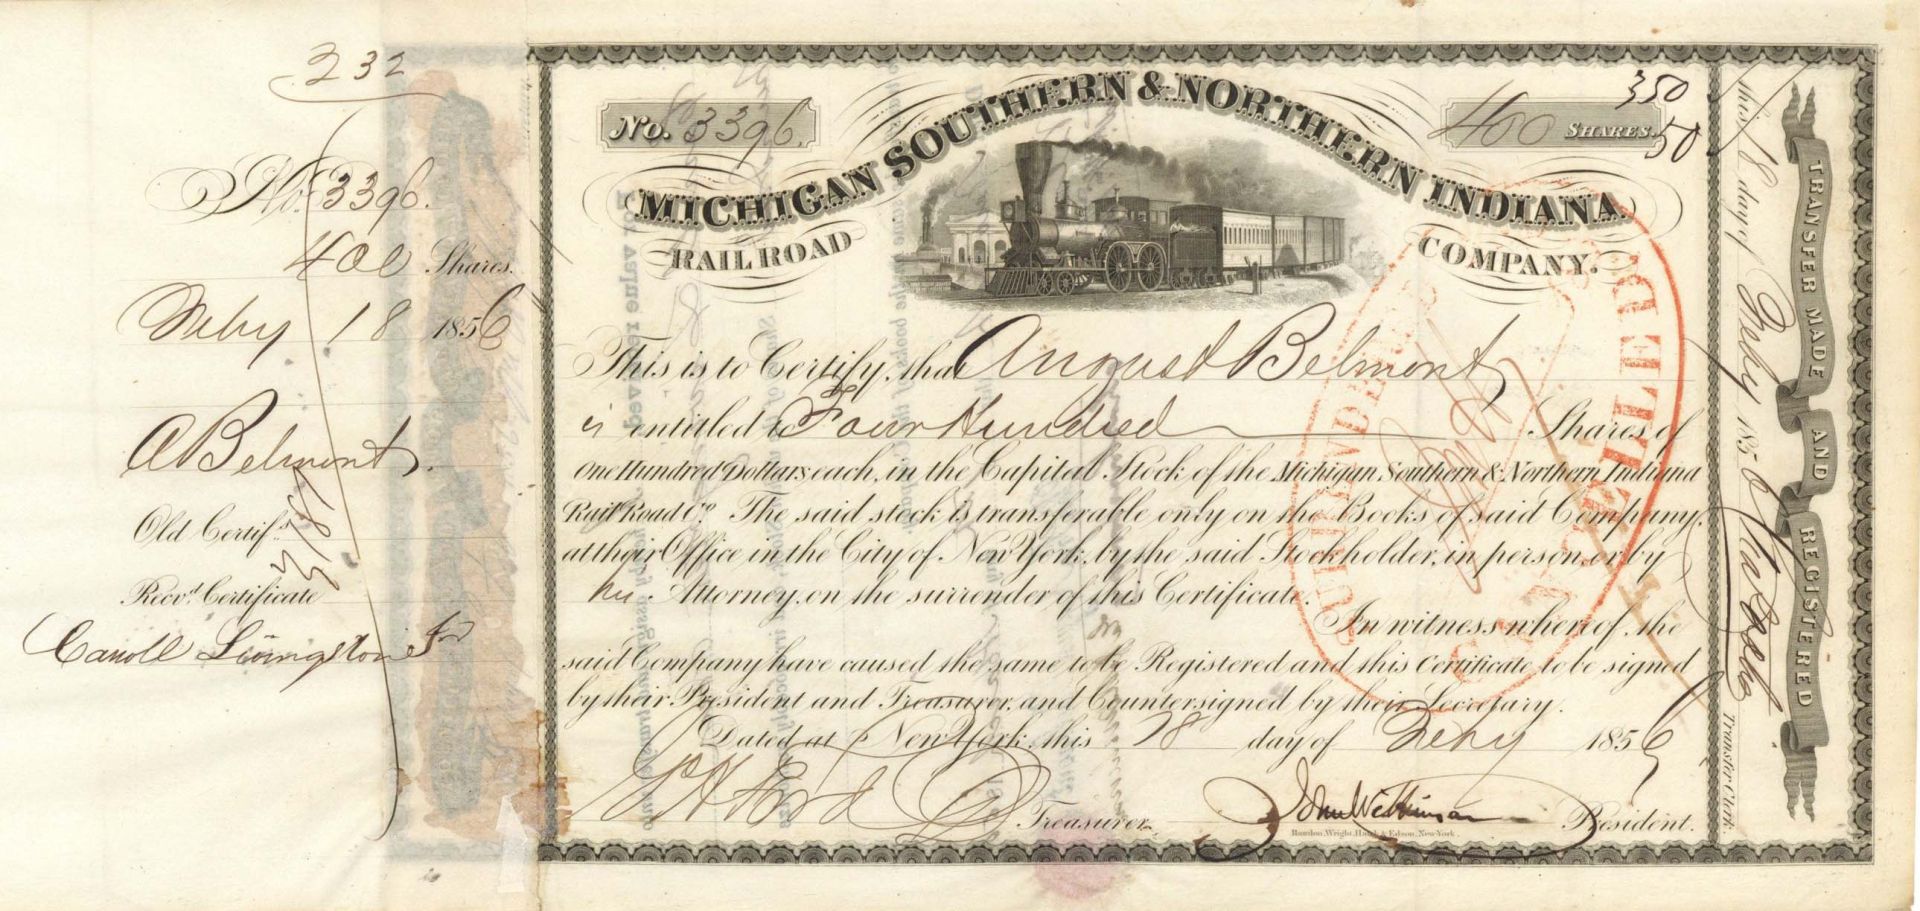 232
No. 3396.
400 Shares.
Feby 18 1856
A Belmont.
Old Certif.s
3181
Recvd. Certificate
Carroll Livingston
No. 3396.
400 SHARES.
350
50
MICHIGAN SOUTHERN & NORTHERN INDIANA
RAILROAD COMPANY.
This is to Certify, that August Belmont
is entitled to Four Hundred Shares of
One Hundred Dollars, each, in the Capital Stock of the Michigan Southern & Northern Indiana
Rail Road Co. The said stock is transferable only on the Books of said Company,
at their Office in the City of New York, by the said Stockholder, in person, or by
his Attorney, on the surrender of this Certificate.
In witness whereof, the
said Company have caused the same to be Registered and this Certificate, to be signed
by their President and Treasurer, and Countersigned by their Secretary.
Dated at New York, this 18 day of Feby 1856
Treasurer
John Wilkinson President.
Rawdon, Wright, Hatch & Edson, New-York.
SURRENDERED
CANCELLED
this 18 day of Feby 1856
Transfer Clerk
TRANSFER MADE AND REGISTERED